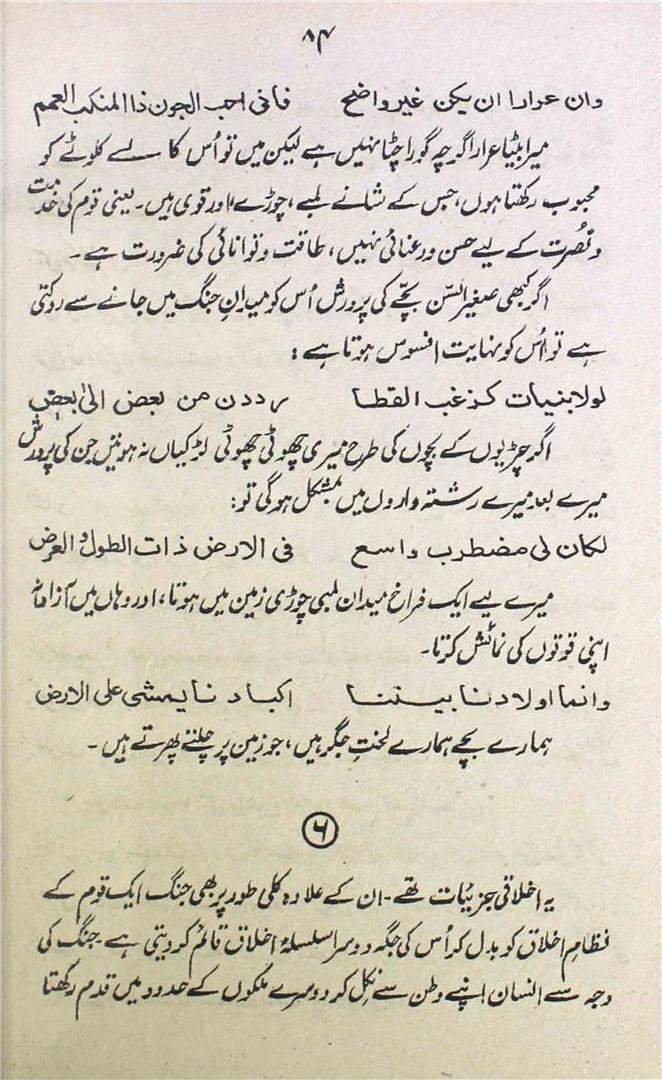 ۸۴
وان عرارا ان یکن غیر واضح فانی احب الجون ذا المنکب العمم
میرا بیٹا عرار اگرچہ گورا چٹا نہیں ہے لیکن میں تو اُس کالے کلوٹے کو
محبوب رکھتا ہوں، جس کے شانے لمبے، چوڑے اور قوی ہیں۔ یعنی قوم کی خدمت
و نصرت کے لیے حسن و رعنائی نہیں، طاقت و توانائی کی ضرورت ہے۔
اگر کبھی صغیر السّن بچّے کی پرورش اُس کو میدانِ جنگ میں جانے سے روکتی
ہے تو اُس کو نہایت افسوس ہوتا ہے:
لولا بنیات کزغب القطا رددن من بعض الیٰ بعض
اگر چڑیوں کے بچوں کی طرح میری چھوٹی چھوٹی لڑکیاں نہ ہوتیں جن کی پرورش
میرے بعد میرے رشتہ داروں میں مشکل ہوگی تو:
لکان لی مضطرب واسع فی الارض ذات الطول و العرض
میرے لیے ایک فراخ میدان لمبی چوڑی زمین میں ہوتا، اور وہاں میں آزادانہ
اپنی قوتوں کی نمائش کرتا۔
وانما اولادنا بیننا اکبادنا یمشی علی الارض
ہمارے بچے ہمارے لختِ جگر ہیں، جو زمین پر چلتے پھرتے ہیں۔
۶
یہ اخلاقی جزئیات تھے۔ ان کے علاوہ کلی طور پر بھی جنگ ایک قوم کے
نظامِ اخلاق کو بدل کر اُس کی جگہ دوسرا سلسلۂ اخلاق قائم کر دیتی ہے۔ جنگ کی
وجہ سے انسان اپنے وطن سے نکل کر دوسرے ملکوں کے حدود میں قدم رکھتا